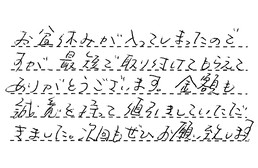 お盆休みが入ってしまったので
すが最短で取り付けてもらえて
ありがとうございます。金額も
誠意を持って値引きしていただ
きました。次回もぜひお願い致します